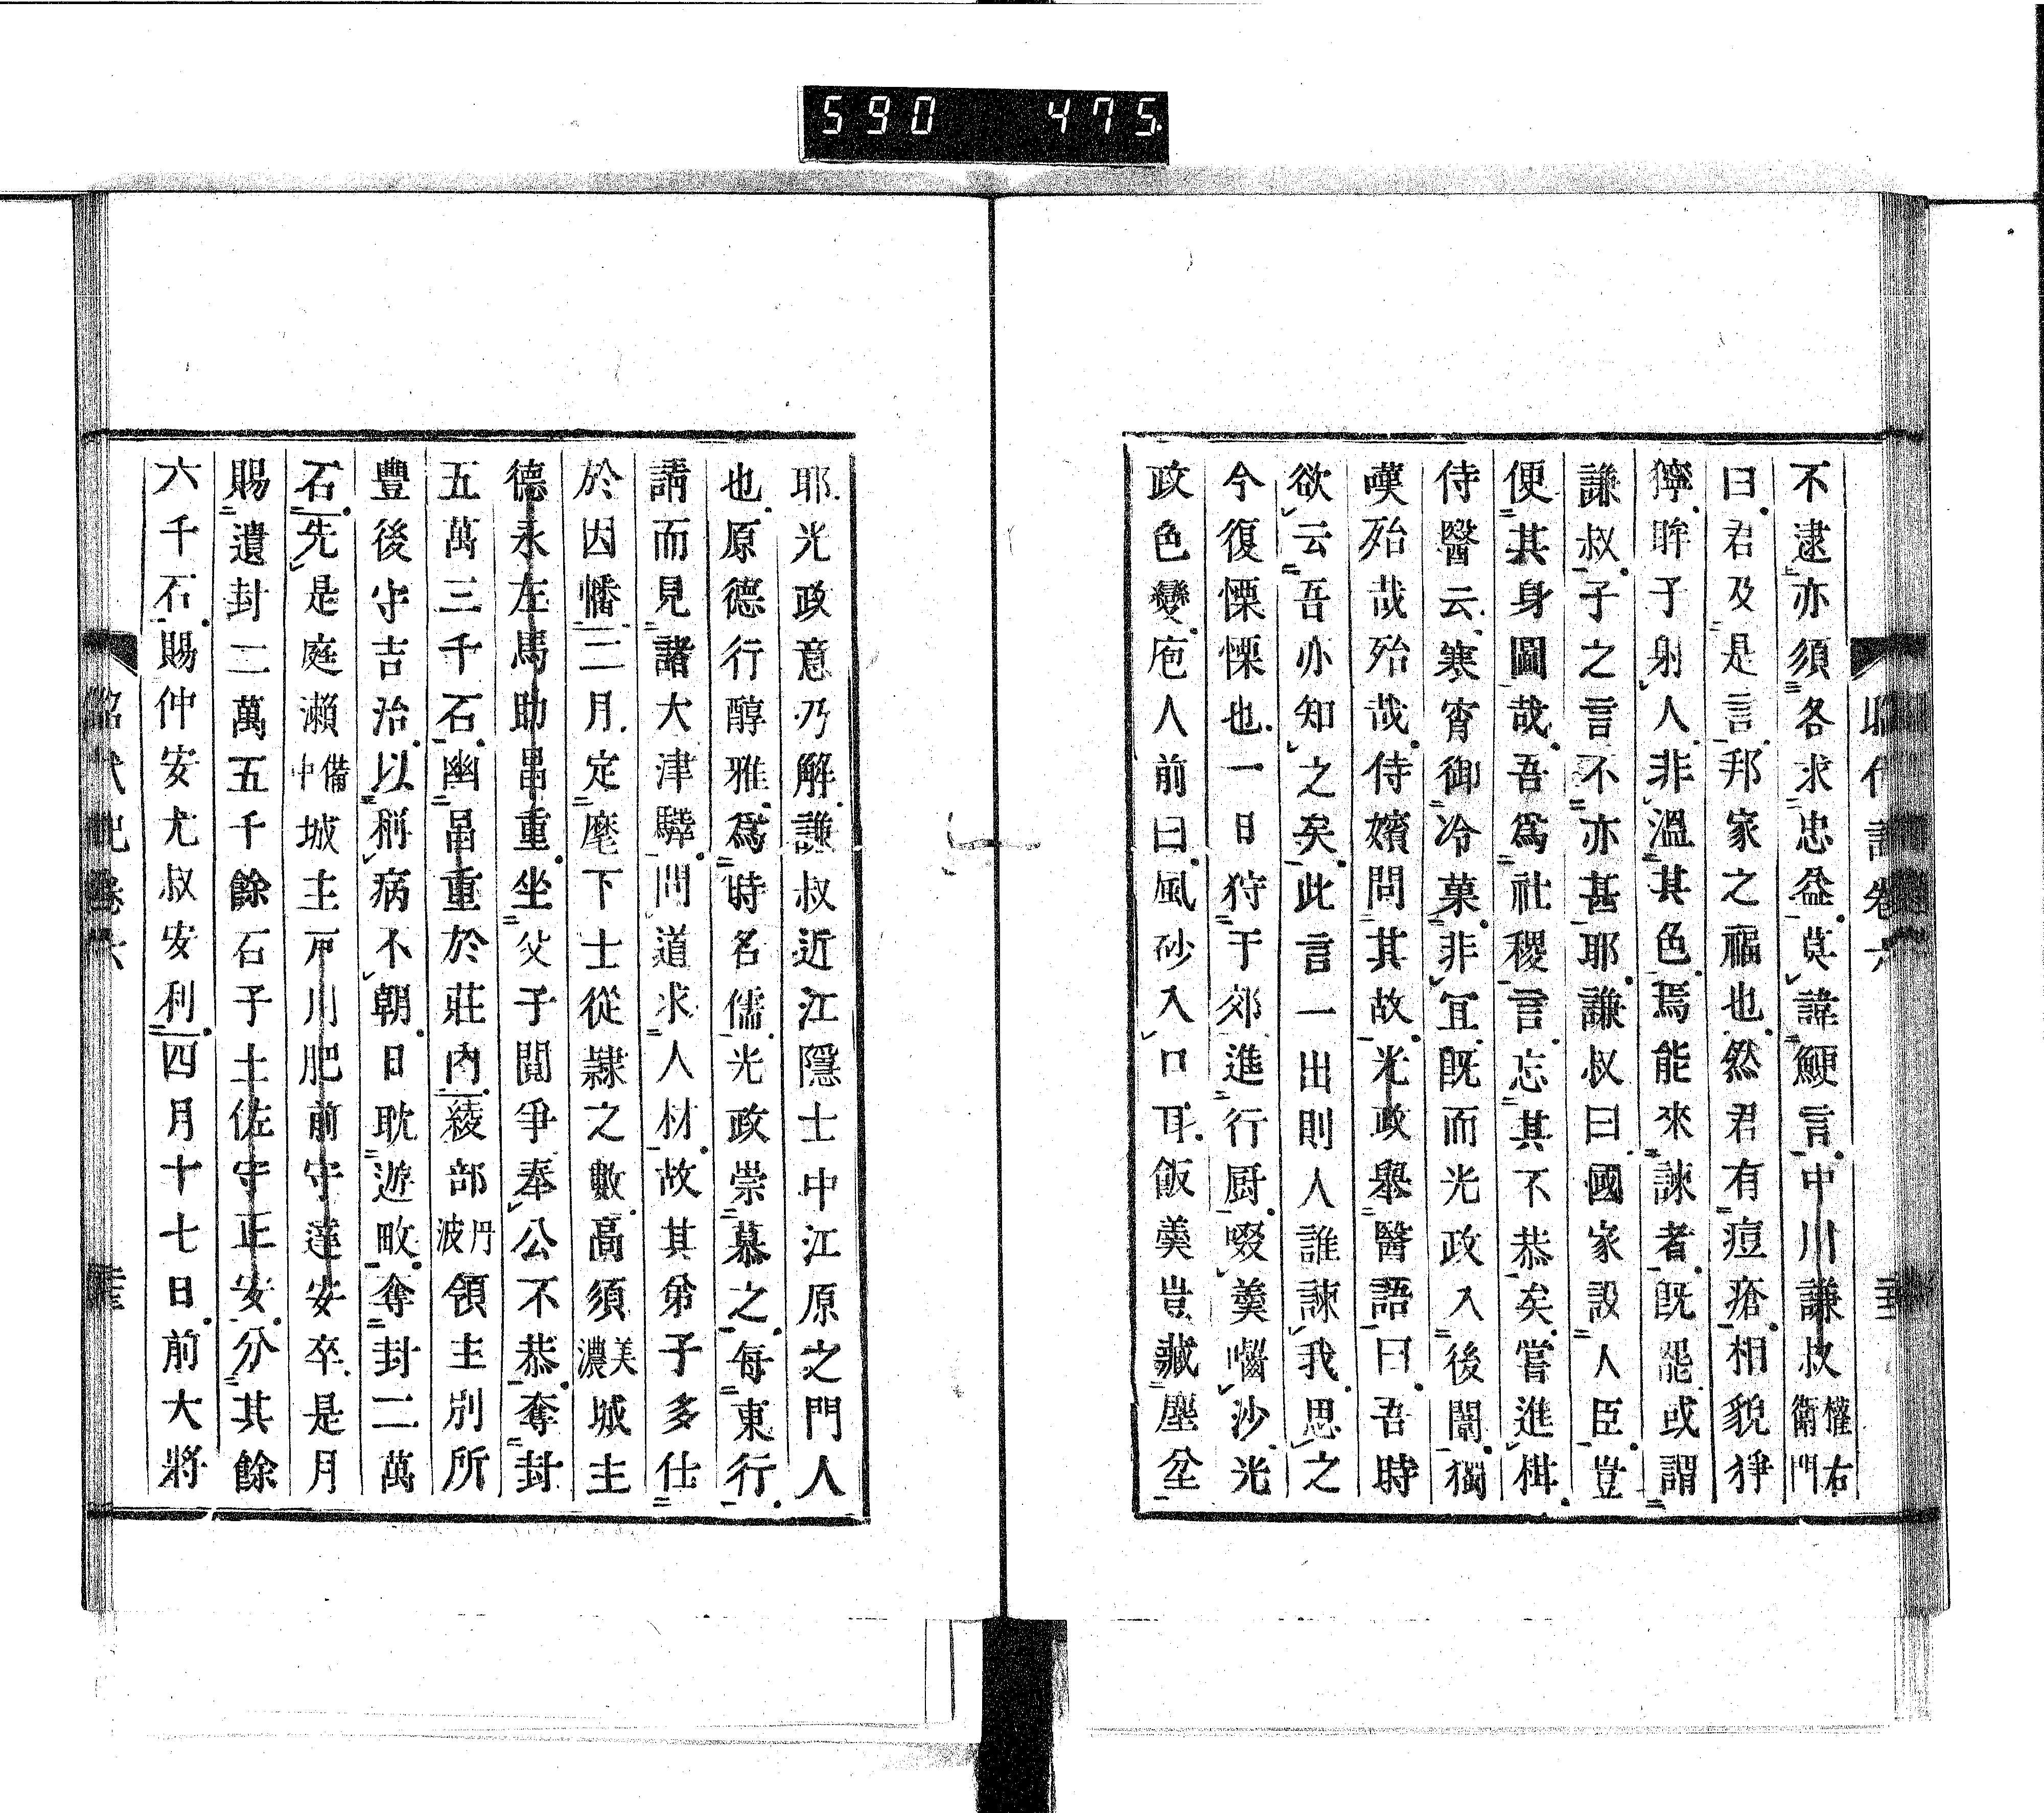 590 475
不逮亦須各求忠益莫諱鯁言中川謙叔權右衛門
曰君及是言邦家之福也然君有痘瘡相貌猙
獰眸子射人非溫其色焉能來諫者既罷或謂
謙叔子之言不亦甚耶謙叔曰國家設人臣豈
便其身圖哉吾為社稷言忘其不恭矣嘗進棋
侍醫云寒宵御冷菓非宜既而光政入後闈獨
嘆殆哉殆哉侍嬪問其故光政舉醫語曰吾時
欲云吾亦知之矣此言一出則人誰諫我思之
今復慄慄也一日狩于郊進行厨啜羹嚙沙光
政色變庖人前曰風砂入口耳飯羹豈藏塵坌
耶光政意乃解謙叔近江隱士中江原之門人
也原德行醇雅為時名儒光政崇慕之每東行
請而見諸大津驛問道求人材故其弟子多仕
於因幡二月定麾下士從隷之數高須美濃城主
德永左馬助昌重坐父子鬩爭奉公不恭奪封
五萬三千石幽昌重於莊內綾部丹波領主別所
豐後守吉治以稱病不朝日耽遊畋奪封二萬
石先是庭瀨備中城主戸川肥前守達安卒是月
賜遺封二萬五千餘石子土佐守正安分其餘
六千石賜仲安尤叔安利四月十七日前大將
昭代記卷六